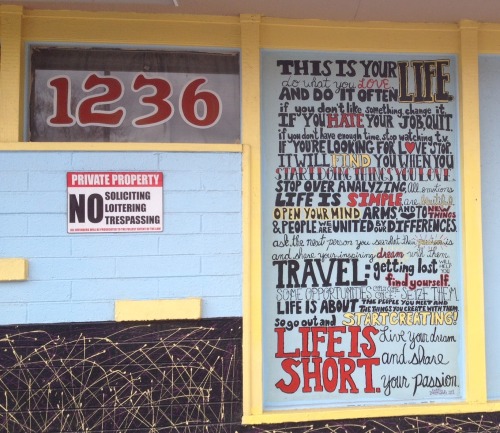 1236
PRIVATE PROPERTY
NO SOLICITING
LOITERING
TRESPASSING
THIS IS YOUR LIFE.
do what you LOVE
AND DO IT OFTEN
if you don't like something change it.
IF YOU HATE YOUR JOB, QUIT.
if you don't have enough time, stop watching t.v.
IF YOU'RE LOOKING FOR LOVE, STOP.
IT WILL FIND YOU WHEN YOU
START DOING THINGS YOU LOVE.
STOP OVER ANALYZING, All emotions
LIFE IS SIMPLE. are beautiful.
OPEN YOUR MIND, ARMS, AND TO NEW THINGS
& PEOPLE, ARE UNITED IN OUR DIFFERENCES.
ask the next person you see what their passion is
and share your inspiring dream with them.
TRAVEL: getting lost WITH YOU
find yourself.
SOME OPPORTUNITIES ONCE, SEIZE THEM.
LIFE IS ABOUT THE PEOPLE YOU MEET AND
THE THINGS YOU CREATE WITH THEM
so go out and START CREATING!
LIFE IS Live your dream
SHORT. and share
your passion.